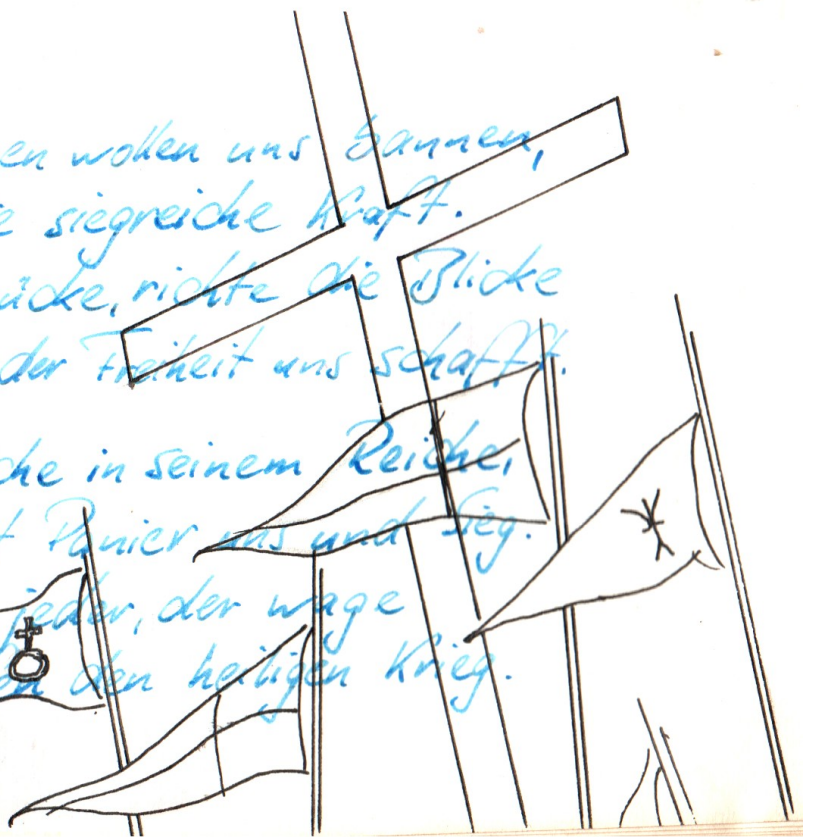 en wollen uns bannen,
e siegreiche Kraft.
ücke, richte die Blicke
der Freiheit uns schafft.
che in seinem Reiche,
t Panier uns und Sieg.
jeder, der wage
en den heiligen Krieg.